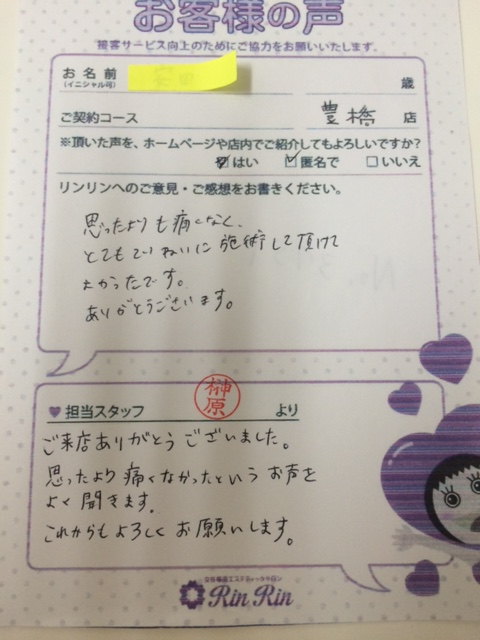 お客様の声
接客サービス向上のためにご協力をお願いいたします。
お名前
(イニシャル可)
歳
ご契約コース 豊橋 店
※頂いた声を、ホームページや店内でご紹介してもよろしいですか?
☑はい ☑匿名で □いいえ
リンリンへのご意見・ご感想をお書きください。
思ったよりも痛くなく、
とてもていねいに施術して頂けて
よかったです。
ありがとうございます。
♥担当スタッフ 榊原 より
ご来店ありがとうございました。
思ったより痛くなかったというお声を
よく聞きます。
これからもよろしくお願いします。
女性専用エステティックサロン
Rin Rin